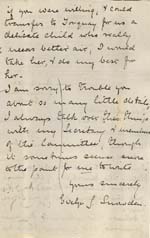 if you were willing, & could
transfer to Torquay for us a
delicate child who really
needs better air, I would
take her, & do my best for
her.
I am sorry to trouble you
about so many little details
I always talk over the things
with my Secretary & members
of the Committee, though
it sometimes seems more
to the point for me to write
Yours sincerely